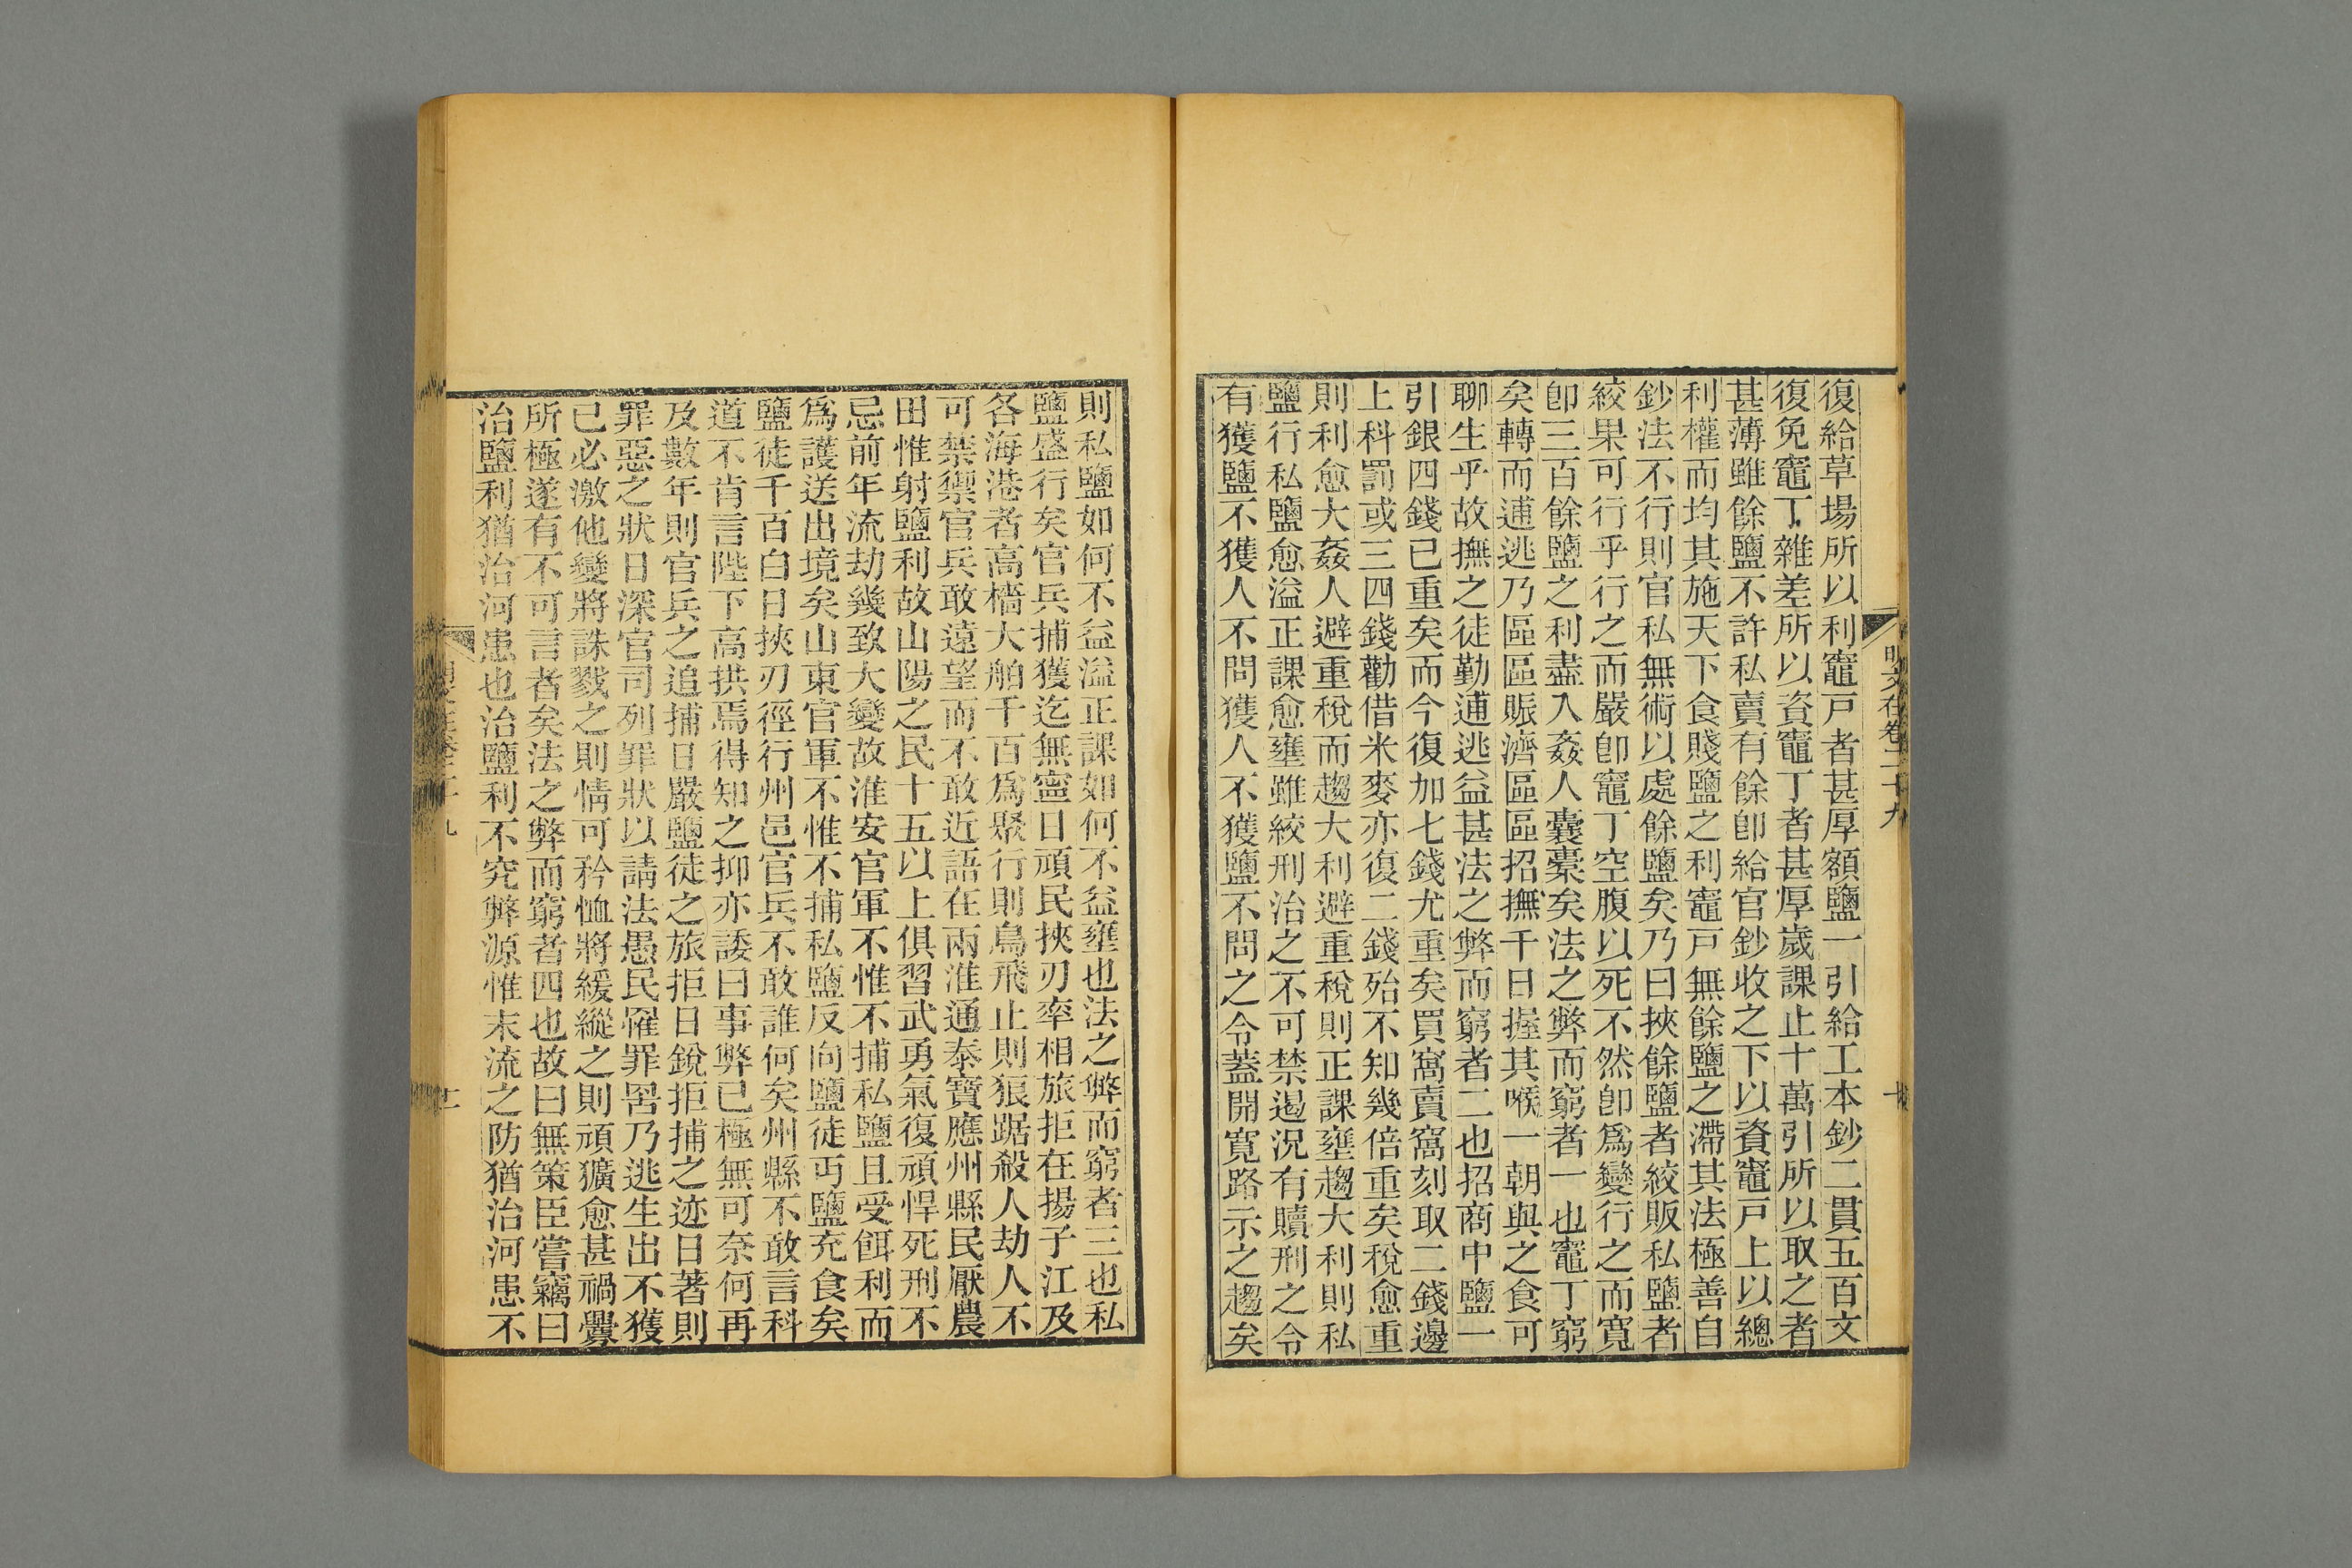 復給草場所以利竈戸者甚厚額鹽一引給工本鈔二貫五百文
復免竈丁雜差所以資竈丁者甚厚歲課止十萬引所以取之者
甚薄雖餘鹽不許私賣有餘卽給官鈔收之下以資竈戸上以總
利權而均其施天下食賤鹽之利竈戸無餘鹽之滯其法極善自
鈔法不行則官私無術以處餘鹽矣乃曰挾餘鹽者絞販私鹽者
絞果可行乎行之而嚴卽竈丁空腹以死不然卽爲變行之而寬
卽三百餘鹽之利盡入姦人囊橐矣法之弊而窮者一也竈丁窮
矣轉而逋逃乃區區賑濟區區招撫千日握其喉一朝與之食可
聊生乎故撫之徒勤逋逃益甚法之弊而窮者二也招商中鹽一
引銀四錢已重矣而今復加七錢尤重矣買窩賣窩刻取二錢邊
上科罰或三四錢勸借米麥亦復二錢殆不知幾倍重矣稅愈重
則利愈大姦人避重稅而趨大利避重稅則正課壅趨大利則私
鹽行私鹽愈溢正課愈壅雖絞刑治之不可禁遏況有贖刑之令
有獲鹽不獲人不問獲人不獲鹽不問之令蓋開寬路示之趨矣
明文在卷二十九
十
則私鹽如何不益溢正課如何不益壅也法之弊而窮者三也私
鹽盛行矣官兵捕獲迄無寧日頑民挾刃率相旅拒在揚子江及
各海港者高檣大舶千百爲聚行則鳥飛止則狼踞殺人劫人不
可禁禦官兵敢遠望而不敢近語在兩淮通泰寶應州縣民厭農
田惟射鹽利故山陽之民十五以上俱習武勇氣復頑悍死刑不
忌前年流劫幾致大變故淮安官軍不惟不捕私鹽且受餌利而
爲護送出境矣山東官軍不惟不捕私鹽反向鹽徒丏鹽充食矣
鹽徒千百白日挾刃徑行州邑官兵不敢誰何矣州縣不敢言科
道不肯言陛下高拱焉得知之抑亦諉曰事弊已極無可奈何再
及數年則官兵之追捕日嚴鹽徒之旅拒日銳拒捕之迹日著則
罪惡之狀日深官司列罪狀以請法愚民罹罪罟乃逃生出不獲
已必激他變將誅戮之則情可矜恤將緩縱之則頑獷愈甚禍釁
所極遂有不可言者矣法之弊而窮者四也故曰無策臣嘗竊曰
治鹽利猶治河患也治鹽利不究弊源惟末流之防猶治河患不